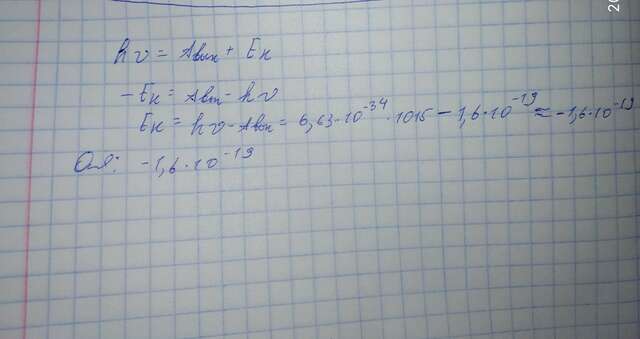 hν = Aвых + Eк
-Eк = Aвых - hν
Eк = hν - Aвых = 6,63·10⁻³⁴·1015 - 1,6·10⁻¹⁹ ≈ -1,6·10⁻¹⁹
Отв: -1,6·10⁻¹⁹